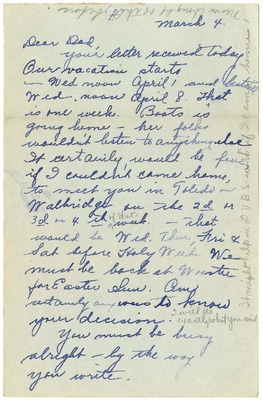 March 4.
Dear Dad,
Your letter received today
Our vacation starts
– Wed. noon April 1, and lasts till
Wed. noon April 8. That
is one week. Boots is
going home – her folks
wouldn't listen to anything else.
It certainly would be fine
if I couldn't come home,
to meet you in Toledo or
Walbridge on the 2d or
3d or 4th of that week – that
would be Wed. Thur, Fri &
Sat before Holy Week. We
must be back at Wooster
for Easter Sun. Am
certainly anxious to know
your decision. I will do exactly what you want
You must be busy
alright – by the way
you write.